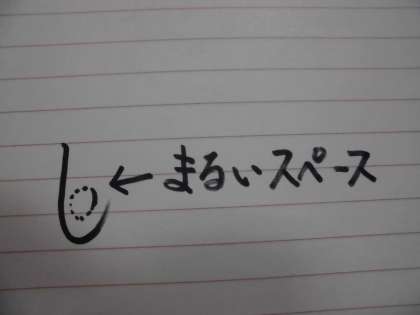 し ← まるいスペース